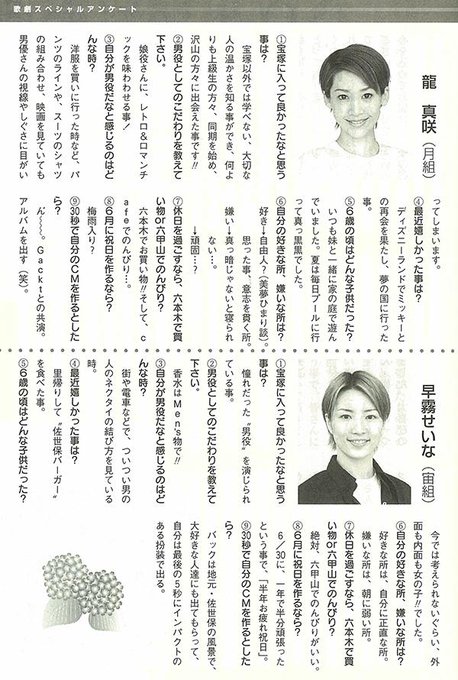 歌劇スペシャルアンケート
龍 真咲(月組)
①宝塚に入って良かったなと思う
事は?
宝塚以外では学べない、大切な
人の温かさを知る事ができ、何よ
りも上級生の方々、同期を始め、
沢山の方々に出会えた事です!!
②男役としてのこだわりを教えて
下さい。
娘役さんに、レトロ&ロマンチ
ックを味わわせる事!
③自分が男役だなと感じるのはど
んな時?
洋服を買いに行った時など、パ
ンツのラインや、スーツのシャツ
の組み合わせ、映画を見ていても
男優さんの視線やしぐさに目がい
ってしまいます。
④最近嬉しかった事は?
ディズニーランドでミッキーと
の再会を果たし、夢の国に行った
事。
⑤6歳の頃はどんな子供だった?
いつも妹と一緒に家の庭で遊ん
でいました。夏は毎日プールに行
って真っ黒でした。
⑥自分の好きな所、嫌いな所は?
好き→自由人?(美夢ひまり談)。
思った事、意志を貫く所。
嫌い→真っ暗じゃないと寝られ
ない…。
→頑固…?
⑦休日を過ごすなら、六本木で買
い物or六甲山でのんびり?
六本木でお買い物!!そして、c
afeでのんびり…。
⑧6月に祝日を作るなら?
梅雨入り?
⑨30秒で自分のCMを作るとした
ら?
ん〜〜〜。Gacktとの共演。
アルバムを出す(笑)。
早霧せいな(宙組)
①宝塚に入って良かったなと思う
事は?
憧れだった“男役”を演じられ
ている事。
②男役としてのこだわりを教えて
下さい。
香水はMen's物で!!
③自分が男役だなと感じるのはど
んな時?
街や電車などで、ついつい男の
人のネクタイの結び方を見ている
時。
④最近嬉しかった事は?
里帰りして“佐世保バーガー”
を食べた事。
⑤6歳の頃はどんな子供だった?
今では考えられないぐらい、外
面も内面も女の子!!でした。
⑥自分の好きな所、嫌いな所は?
好きな所は、自分に正直な所。
嫌いな所は、朝に弱い所。
⑦休日を過ごすなら、六本木で買
い物or六甲山でのんびり?
絶対、六甲山でのんびりがいい。
⑧6月に祝日を作るなら?
6/30に、一年で半分頑張った
という事で、「半年お疲れ祝日」。
⑨30秒で自分のCMを作るとした
ら?
バックは地元・佐世保の風景で、
大好きな人達にも出てもらって、
自分は最後の5秒にインパクトの
ある扮装で出る。